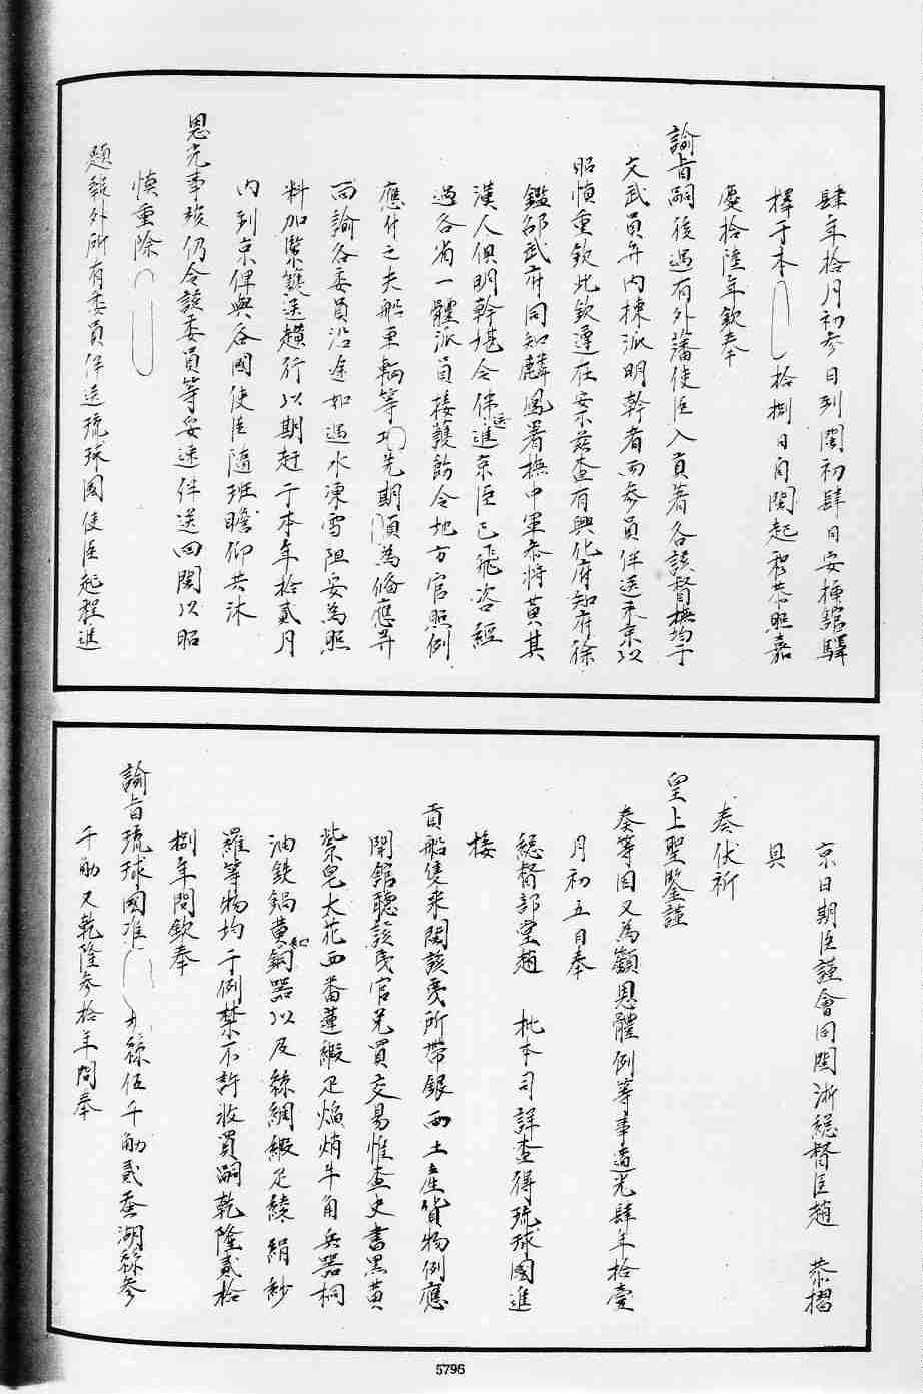 肆年拾月初參日到閩初肆日安揷舘驛
擇于本拾捌日自閩起程恭照嘉
慶拾陸年欽奉
諭旨嗣後遇有外藩使臣入貢著各該督撫均于
文武員弁內揀派明幹者两參員伴送来京以
昭慎重欽此欽遵在案茲查有興化府知府徐
鑑邵武府同知麟鳳署撫中軍參將黃其
漢人俱明幹堪令伴送進京臣已飛咨經
過各省一體派員接護飭令地方官照例
應付之夫船車輌等項先期預為俻應弁
面諭各委員沿途如遇水凍雪阻妥為照
料加緊護送趲行以期赶于本年拾貳月
內到京俾與各國使臣隨班瞻仰共沐
恩光事竣仍令該委員等妥速伴送回閩以昭
慎重除
題報外所有委員伴送琉球國使臣起程進
京日期臣謹會同閩浙総督臣趙 恭摺
具
奏伏祈
皇上聖鑒謹
奏等因又為籲恩體例等事道光肆年拾壹
月初五日奉
総督部堂趙 批本司詳查得琉球國進
接
貢船隻来閩該夷所帶銀両土產貨物例應
開館聽該夷官兌買交易惟查史書黑黃
紫皂大花西番蓮緞疋焔焇牛角兵器桐
油鉄鍋黃紅銅器以及絲綢緞疋綾絹紗
羅等物均于例禁不許收買嗣乾隆貳拾
捌年間欽奉
諭旨琉球國准絲伍千觔貳蚕湖絲參
千觔又乾隆參拾年間奉
5796